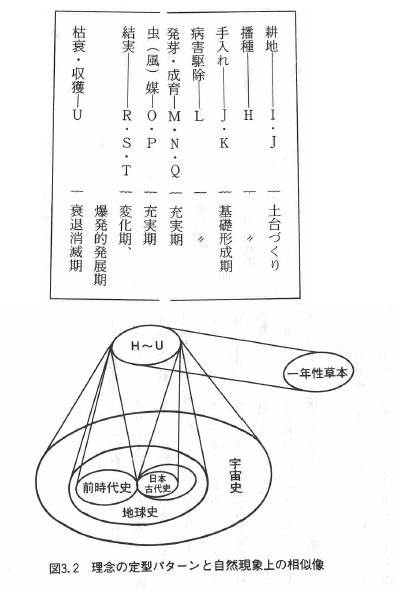 耕地――I・J ― 土台づくり
播種――H ― 〃
手入れ――J・K ― 基礎形成期
病害駆除――L ― 〃
発芽・成育――M・N・Q ― 充実期
虫(風)媒――O・P ― 充実期
結実――R・S・T ― 変化期、
爆発的発展期
枯衰・収穫――U ― 衰退消滅期
H～U
一年性草本
宇宙史
日本
古代史
前時代史
地球史
図3.2 理念の定型パターンと自然現象上の相似像